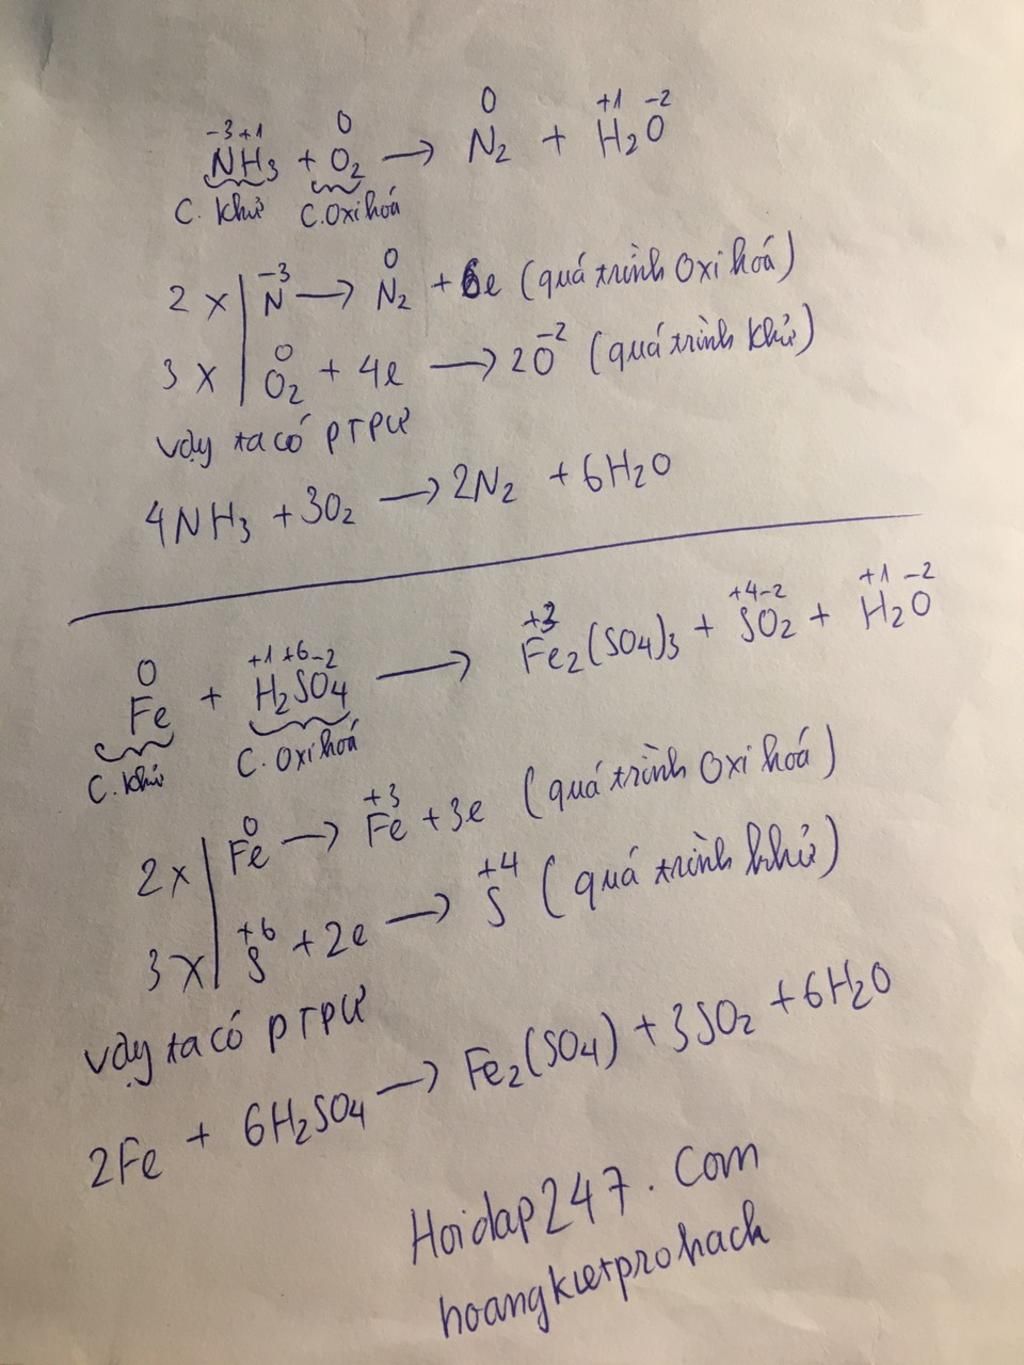 -3 +1 0 0 +1 -2
NH3 + O2 → N2 + H2O
C. khử C. Oxi hoá
2 x | N^-3 → N2^0 + 6e (quá trình Oxi hoá)
3 x | O2^0 + 4e → 2O^-2 (quá trình khử)
vậy ta có PTPƯ
4NH3 + 3O2 → 2N2 + 6H2O
0 +1 +6 -2 +3 +4 -2 +1 -2
Fe + H2SO4 → Fe2(SO4)3 + SO2 + H2O
C. khử C. Oxi hoá
2x | Fe^0 → Fe^+3 + 3e (quá trình Oxi hoá)
3x | S^+6 + 2e → S^+4 (quá trình khử)
vậy ta có PTPƯ
2Fe + 6H2SO4 → Fe2(SO4) + 3SO2 + 6H2O
Hoidap247.Com
hoangkietprohack